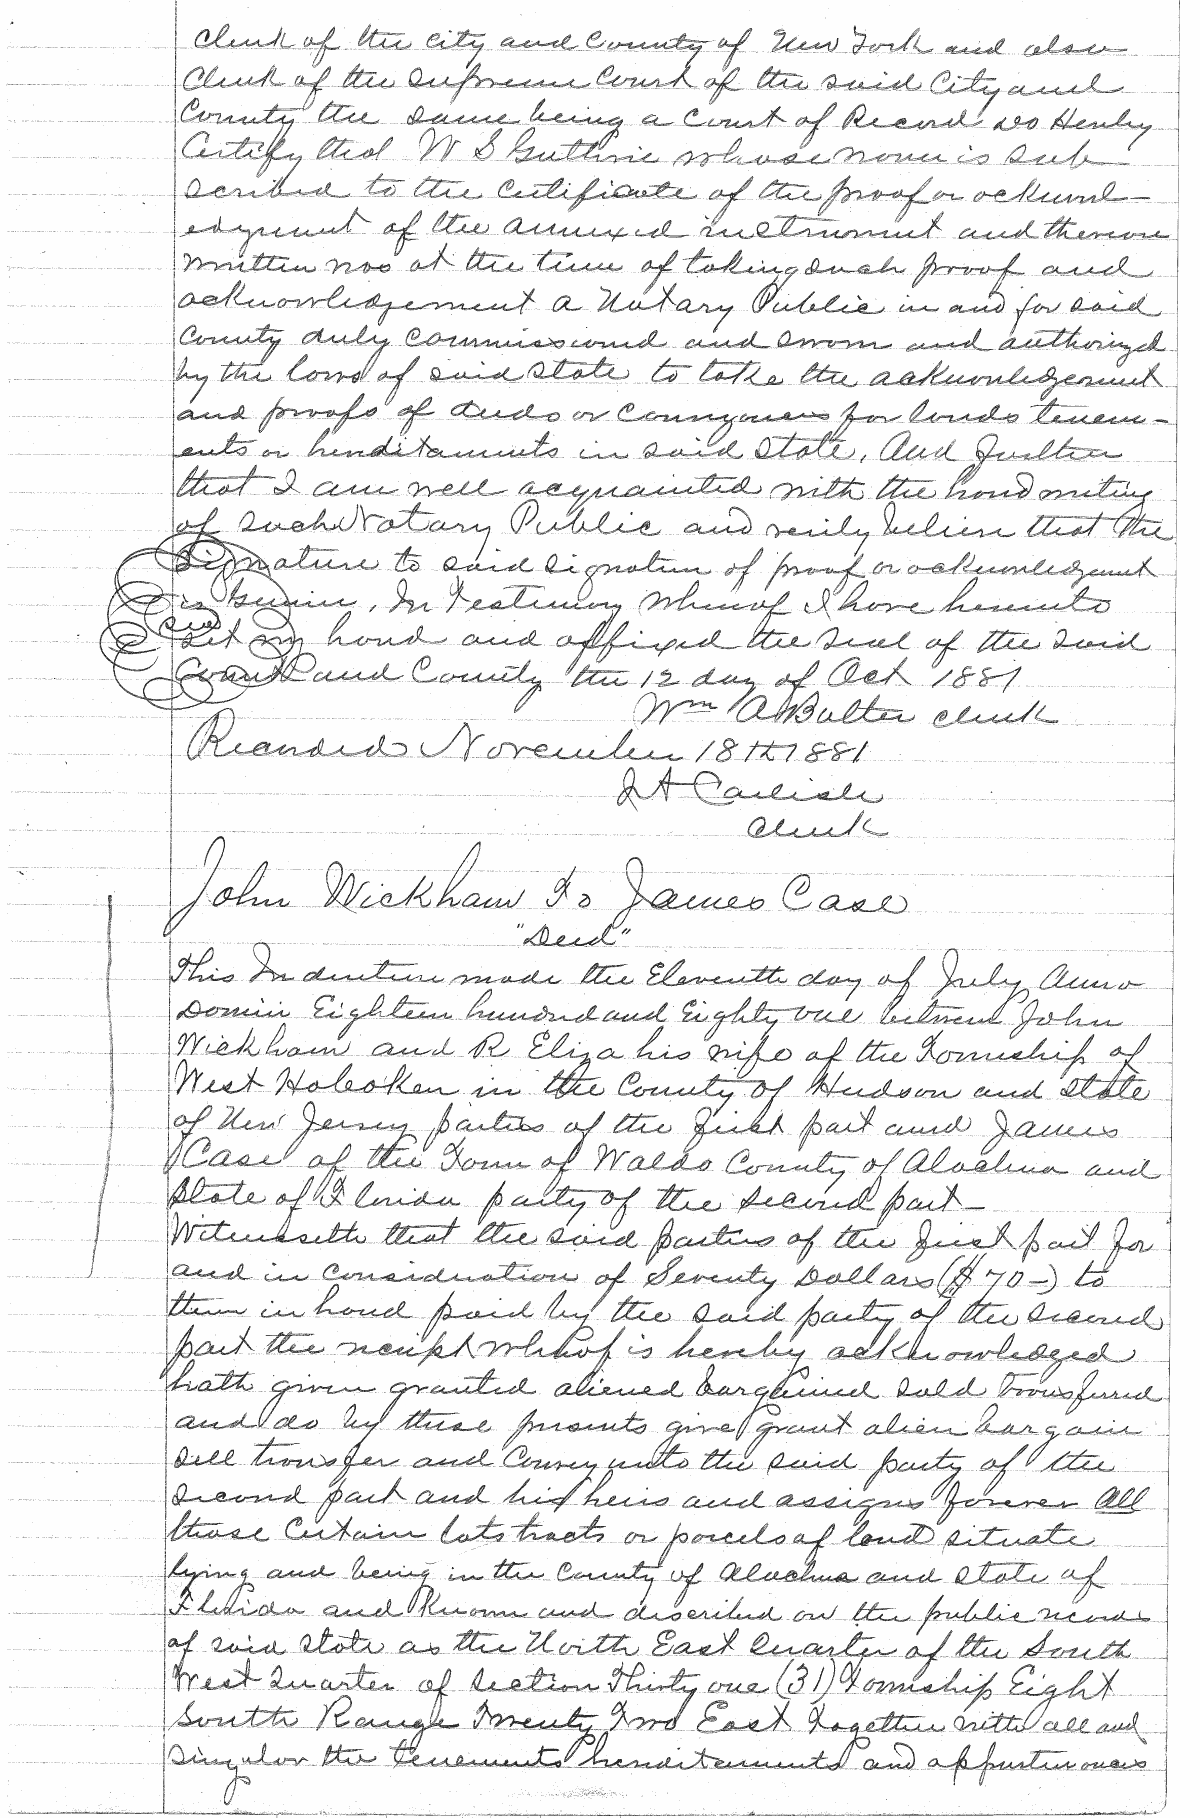 Clerk of the City and County of New York and also
Clerk of the Supreme Court of the said City and
County the same being a Court of Record Do Hereby
Certify that W S Guthrie whose name is sub
scribed to the certificate of the proof or acknowl-
edgment of the annexed instrument and thereon
written was at the time of taking such proof and
acknowledgement a Notary Public in and for said
County duly commissioned and sworn and authorized
by the laws of said State to take the acknowledgement
and proofs of deeds or conveyances for lands tenem-
ents or hereditaments in said State, And Further
that I am well acquainted with the hand writing
of such Notary Public and verily believe that the
Signature to said signature of proof or acknowledgment
is genuine, In Testimony Whereof I have hereunto
set my hand and affixed the seal of the said
Court and County the 12 day of Oct 1881
Seal
Wm A Butler Clerk
Recorded November 18th 1881
J A Carlisle
Clerk
John Wickham To James Case
"Deed"
This Indenture made the Eleventh day of July Anno
Domini Eighteen hundred and Eighty one between John
Wickham and R Eliza his wife of the Township of
West Hoboken in the County of Hudson and State
of New Jersey parties of the first part and James
Case of the Town of Waldo County of Alachua and
State of Florida party of the second part -
Witnesseth that the said parties of the first part for
and in consideration of Seventy Dollars ($70-) to
them in hand paid by the said party of the second
part the receipt whereof is hereby acknowledged
hath given granted aliened bargained sold transferred
and do by these presents give grant alien bargain
sell transfer and Convey unto the said party of the
second part and his heirs and assigns forever All
those certain lots tracts or parcels of land situate
lying and being in the County of Alachua and State of
Florida and Known and described on the public records
of said State as the North East Quarter of the South
West Quarter of Section Thirty one (31) Township Eight
South Range Twenty Two East Together with all and
singular the tenements hereditaments and appurtenances